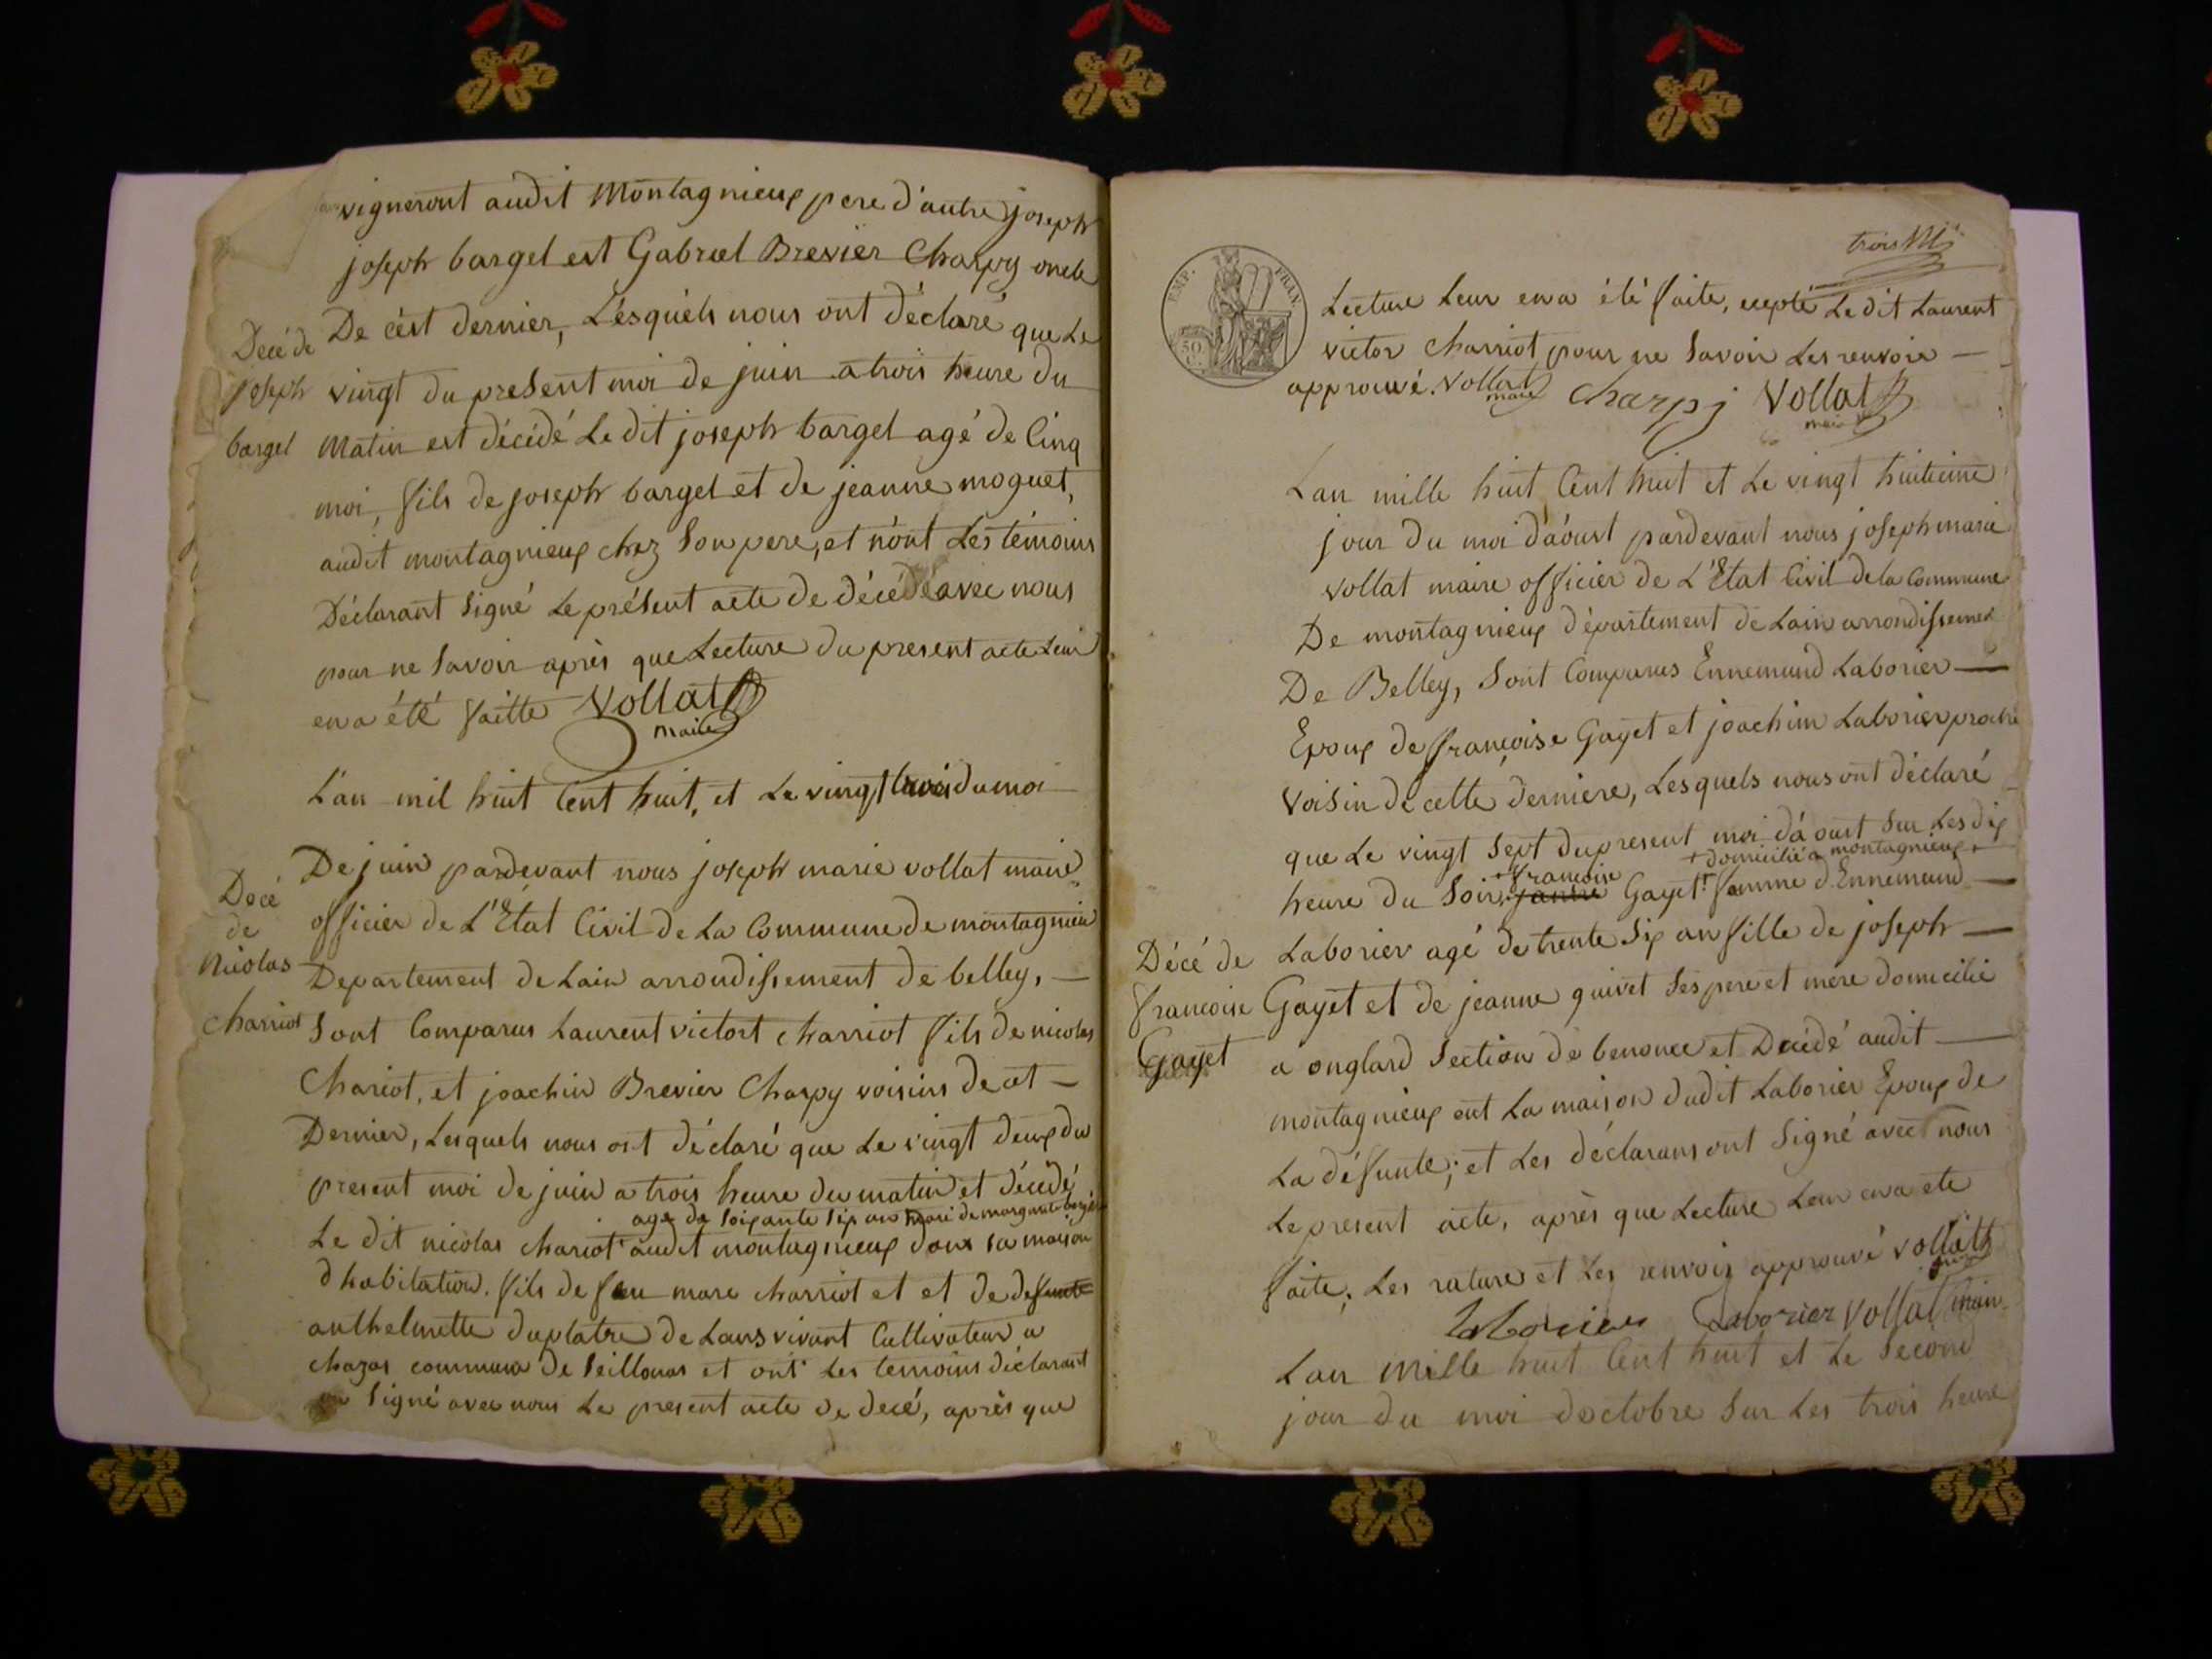 vigneront audit Montagnieux pere d'autre joseph
joseph bargel est Gabriel Brevier Charpy oncle
De cést dernier, Lésquéls nous ont déclaré que Le
Décé de
joseph
bargel
vingt du present moi de juin a trois heure du
Matin est décédé Le dit joseph bargel agé de Cinq
moi, fils de joseph bargel et de jeanne moguet,
audit montagnieux chez Son pere, et n'ont Les témoins
Déclarant Signé Le présent acte de décédé avec nous
pour ne Savoir après que Lecture du present acte Leur
en a été faitte Vollat
maire
L'an mil huit Cent huit, et Le vingt trois du moi
De juin pardevant nous joseph marie vollat maire
Décé
de
Nicolas
Charriot
officier de L'État Civil de La Commune de montagnieu
Departement de Lain arrondissement de belley, —
Sont Comparus Laurent victort charriot fils de nicolas
Chariot, et joachin Brevier Charpy voisins de cet —
Dernier, Lesquels nous ont déclaré que Le vingt deux du
present moi de juin a trois heure du matin et décédé
age de Soixante Six an mari de marguerite
Le dit nicolas chariot audit montagnieux dans sa maison
d habitation. fils de feu marc charriot et et de defunte
anthelmette duplatre de Lans vivant Cultivateur a
chazas commune de Seillonas et ont Les temoins déclarant
Signé avec nous Le present acte de decé, après que
trois
EMP. FRAN.
50
C.
Lecture Leur en a été faite, exepté Le dit Laurent
victor charriot pour ne Savoir Les renvoie —
approuvé. Vollat Charpy Vollat
maire maire
Lan mille huit Cent huit et Le vingt huitieme
jour du moi d'áoust pardevant nous joseph marie
vollat maire officier de L'État Civil de la Commune
De montagnieux département de Lain arrondissement
De Belley, Sont Comparus Ennemund Laborier —
Epoux de françoise Gayet et joachim Laborier proche
Voisin de cette derniere, Lesquels nous ont déclaré
que Le vingt Sept du present moi d'á oust Sur Les dix
+ domicilié a montagnieux
+ françoise
heure du Soir, Gayet + famme d'Ennemund —
Décé de
francoise
Gayet
Laborier agé de trente Six an fille de joseph —
Gayet et de jeanne guivet Ses pere et mere domicilié
a onglard Section de benonce et Décédé audit —
montagnieux ent La maison dudit Laborier Epoux de
La défunte; et Les déclarans ont Signé avec nous
Le present acte, après que Lecture Leur en a ete
faite; Les rature et Les renvois approuvé vollat
maire
Laborier Laborier Vollat maire
Lan Mille huit Cent huit et Le Second
jour du moi doctobre Sur Les trois heure